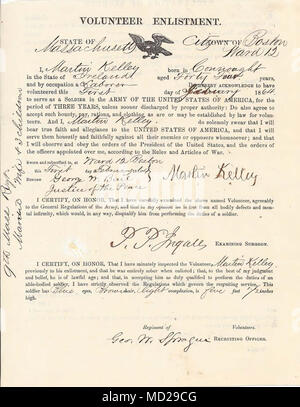 VOLUNTEER ENLISTMENT.
STATE OF Massachusetts City TOWN OF Boston
Ward 12
I, Martin Kelley born in Connought
in the State of Ireland aged Forty Four years,
and by occupation a Laborer DO HEREBY ACKNOWLEDGE to have
volunteered this First day of February 1864
to serve as a SOLDIER in the ARMY OF THE UNITED STATES OF AMERICA, for the
period of THREE YEARS, unless sooner discharged by proper authority: Do also agree to
accept such bounty, pay, rations, and clothing, as are or may be established by law for volun-
teers. And I, Martin Kelley do solemnly swear that I will
bear true faith and allegiance to the UNITED STATES OF AMERICA, and that I will
serve them honestly and faithfully against all their enemies or opposers whomsoever; and that I
will observe and obey the orders of the President of the United States, and the orders of the
officers appointed over me, according to the Rules and Articles of War.
Sworn and subscribed to, at Ward 12 Boston
this First day of February 1864
BEFORE George W.
Justice of the Peace
Martin Kelley
I CERTIFY, ON HONOR, That I have carefully examined the above named Volunteer, agreeably
to the General Regulations of the Army, and that in my opinion he is free from all bodily defects and men-
tal infirmity, which would, in any way, disqualify him from performing the duties of a soldier.
P. P. Ingalls
EXAMINING SURGEON.
I CERTIFY, ON HONOR, That I have minutely inspected the Volunteer, Martin Kelley
previously to his enlistment, and that he was entirely sober when enlisted; that, to the best of my judgment
and belief, he is of lawful age; and that, in accepting him as duly qualified to perform the duties of an
able-bodied soldier, I have strictly observed the Regulations which govern the recruiting service. This
soldier has Blue eyes, Brown hair, Light complexion, is five feet 7 inches
high.
Regiment of Volunteers.
Geo. W. Sprague RECRUITING OFFICER.
9th Mass Regt
Married Wife & Children
alamy
Image ID: MD29CG
www.alamy.com